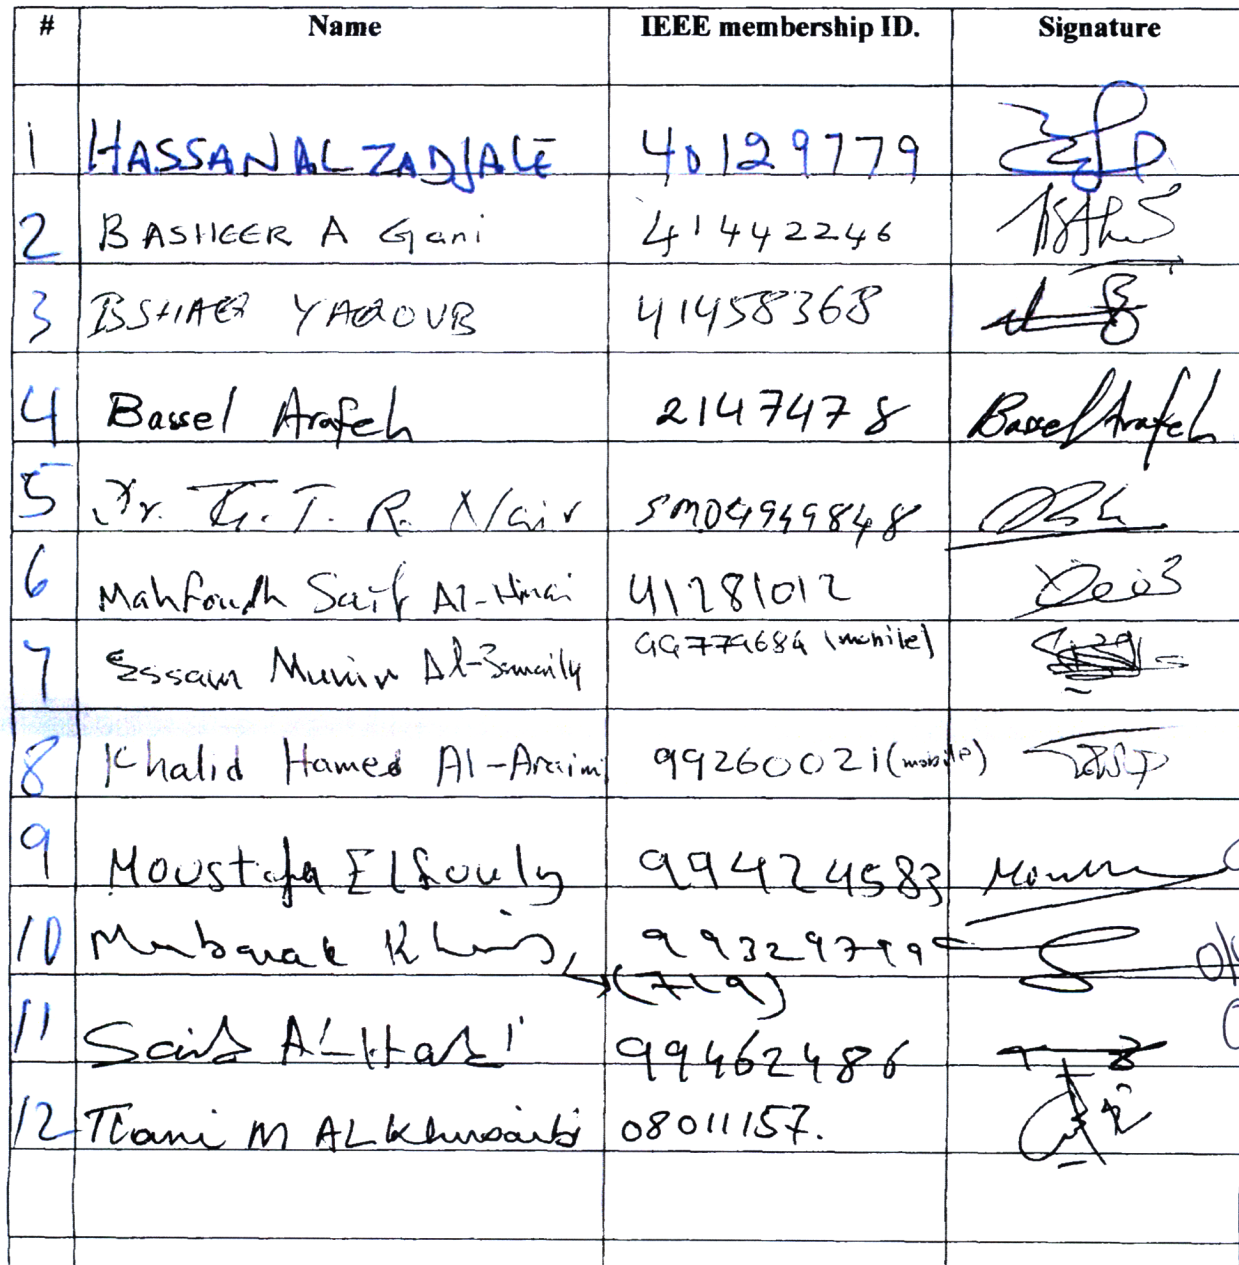 # Name IEEE membership ID. Signature
1 HASSAN AL ZADJALE 40129779
2 BASHEER A Gani 41442246
3 BSHAER YAQOUB 41458368
4 Bassel Arafeh 21474778 Bassel Arafeh
5 Dr. T. R. Nair SM04949848
6 Mahfoudh Saif Al-Hinai 41281012
7 Essam Munir Al- 99779684 (mobile)
8 Khalid Hamed Al-Araimi 99260021 (mobile)
9 Moustafa Elfouly 99424583
10 Mubarak 99329799
(719)
11 99462486
12 Thani M AL Khusaibi 08011157.